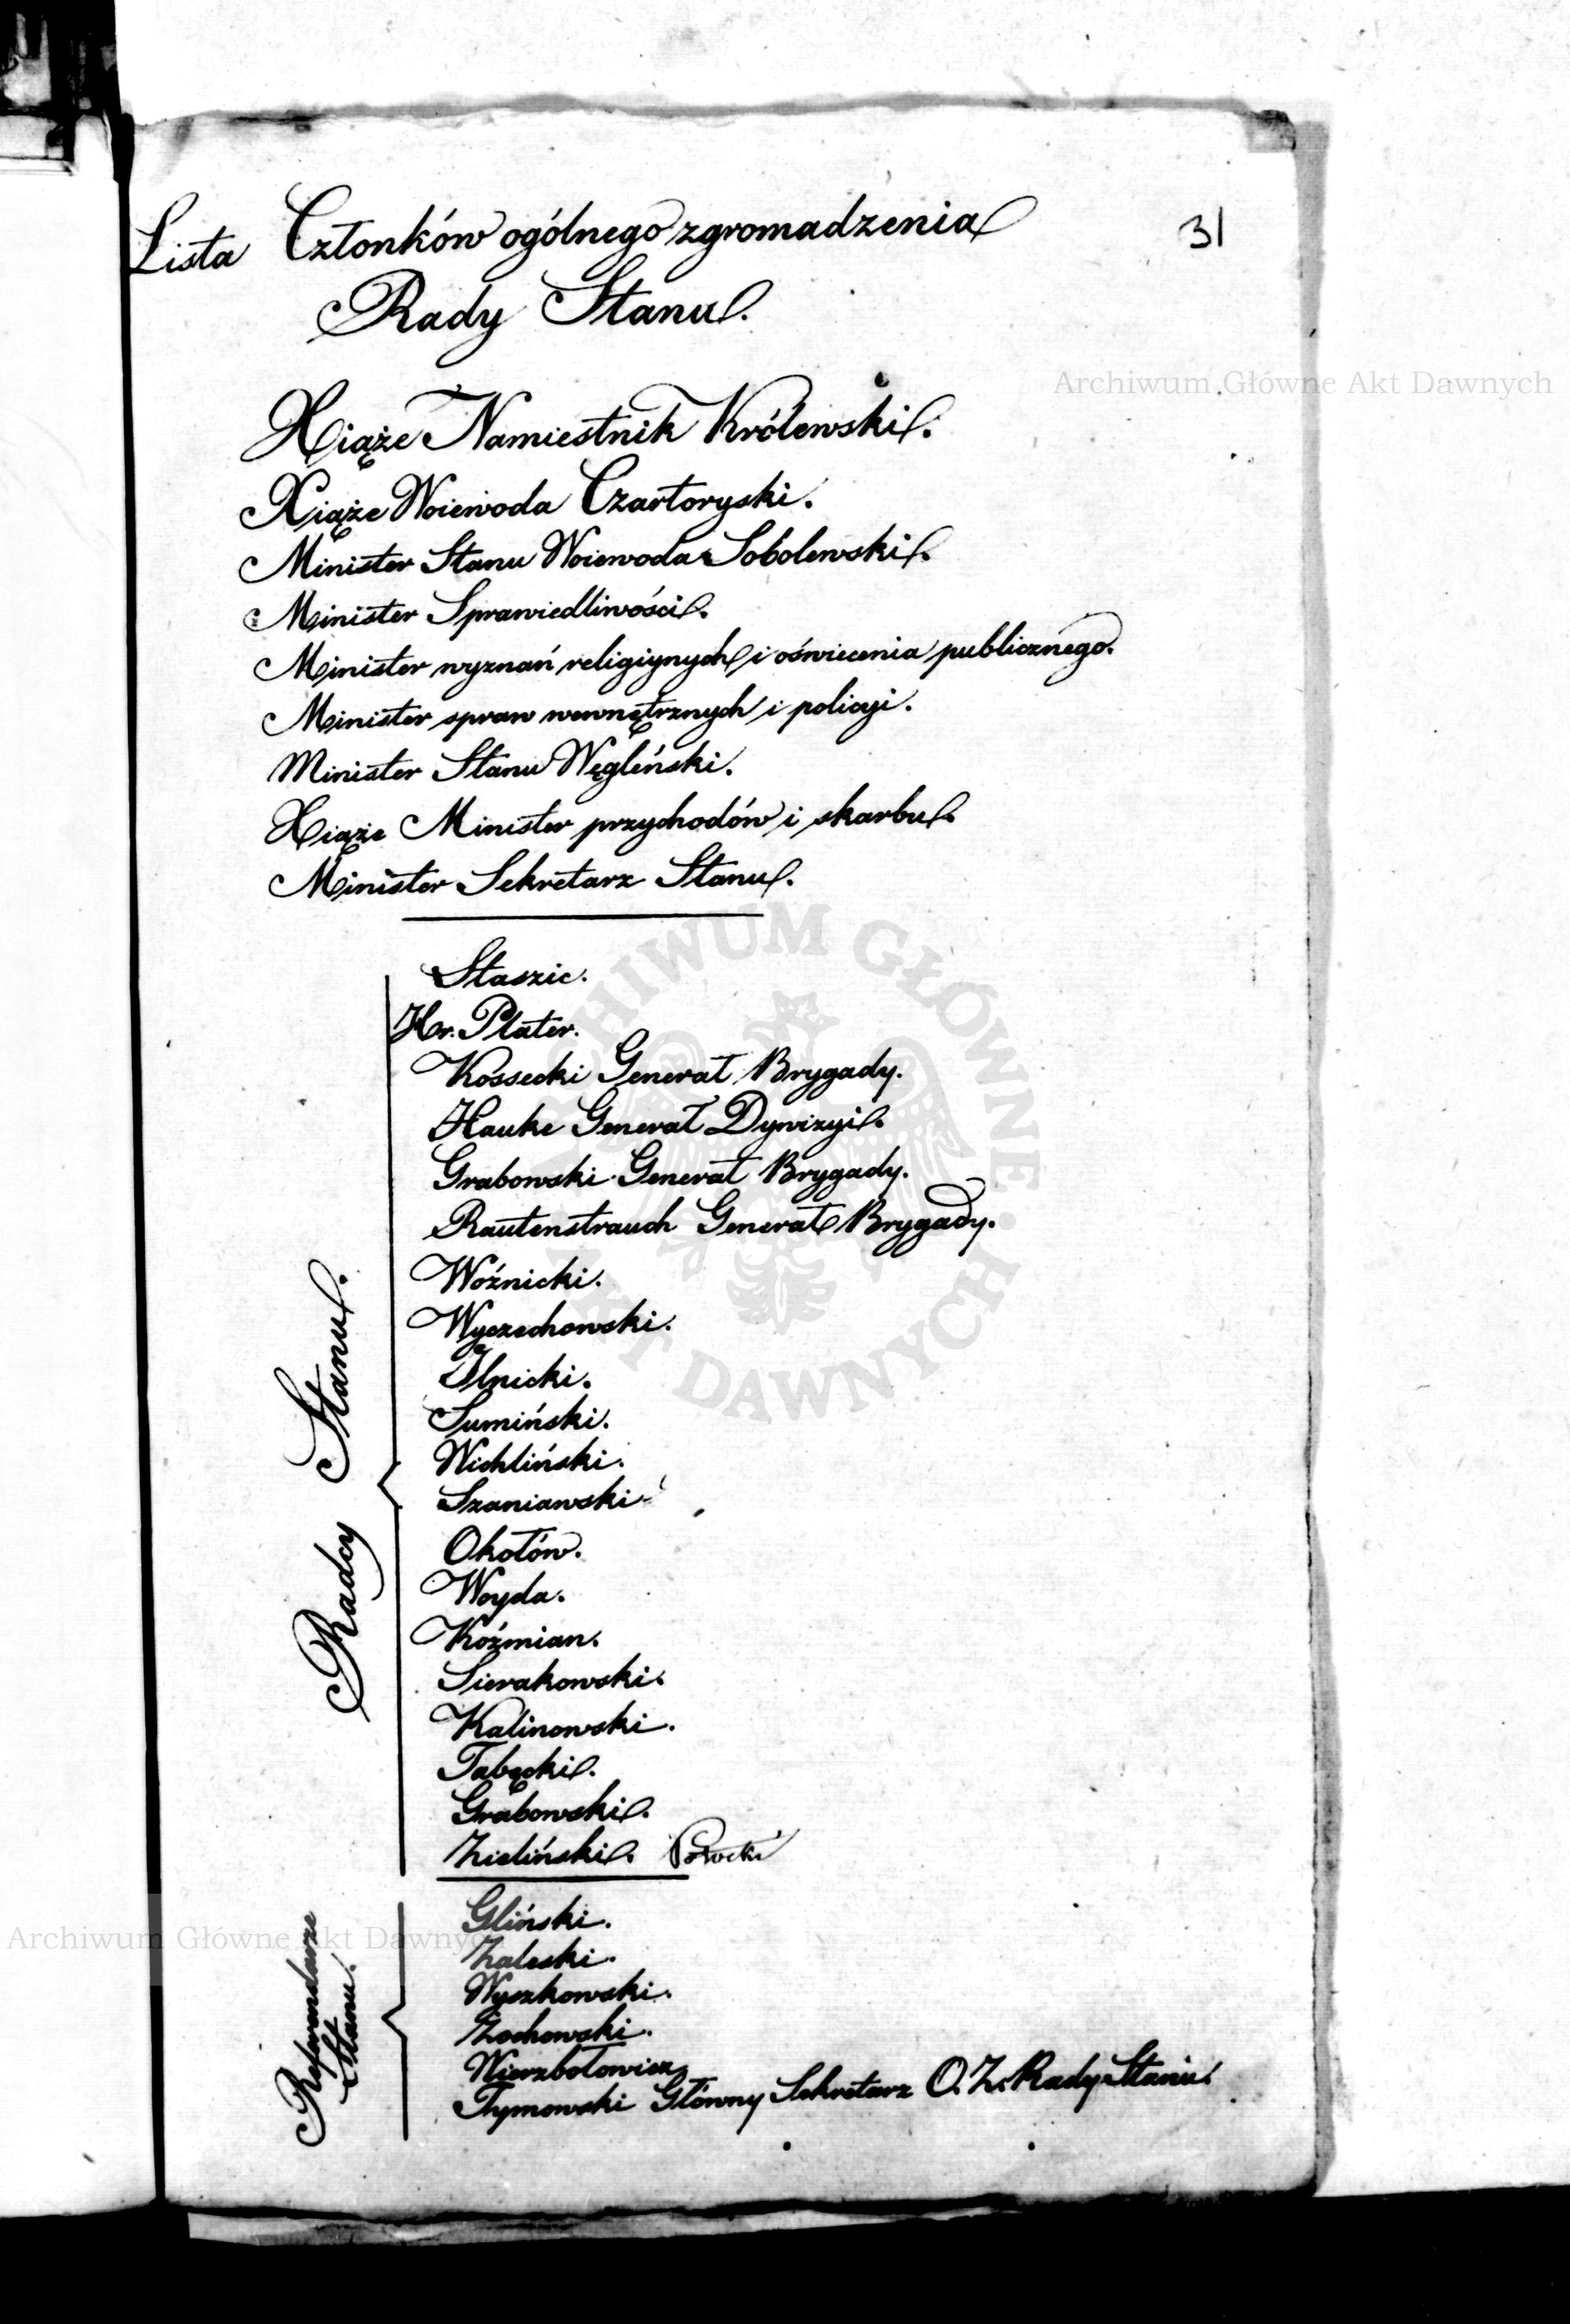 31
Lista Członków ogólnego zgromadzenia
Rady Stanu.
Xiąże Namiestnik Królewski.
Archiwum Główne Akt Dawnych
Xiąże Woiewoda Czartoryski.
Minister Stanu Woiewoda Sobolewski.
Minister Sprawiedliwości.
Minister wyznań religiynych i oświecenia publicznego.
Minister spraw wewnętrznych i policyi.
Minister Stanu Węgleński.
Xiąże Minister przychodów i skarbu.
Minister Sekretarz Stanu.
ARCHIWUM GŁÓWNE AKT DAWNYCH
Radcy Stanu.
Staszic.
Hr. Plater.
Kossecki Generał Brygady.
Hauke Generał Dywizyi.
Grabowski Generał Brygady.
Rautenstrauch Generał Brygady.
Woźnicki.
Wyczechowski.
Ilnicki.
Sumiński.
Wichliński.
Szaniawski
Okołów.
Woyda.
Koźmian.
Sierakowski.
Kalinowski.
Tabęcki.
Grabowski.
Zieliński.
Referendarze
Stanu.
Gliński.
Zaleski.
Archiwum Główne Akt Dawnych
Wyszkowski.
Żochowski.
Wierzbołowicz
Tymowski Główny Sekretarz O. Z. Rady Stanu.